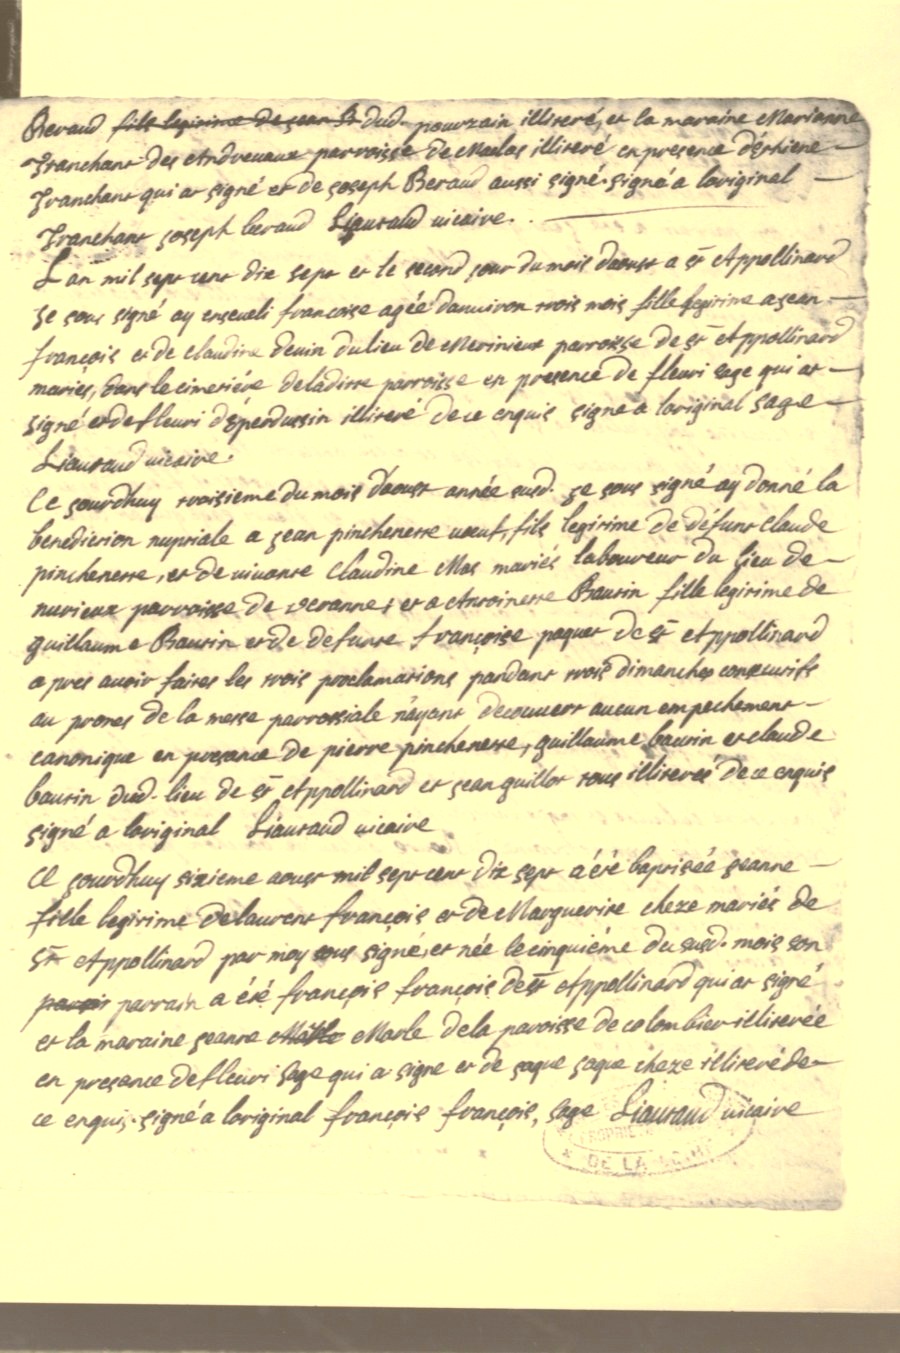 Beraud fils legitime de jean B dud. pourzain illiteré, et la maraine Marianne
Tranchant des Andrevaux parroisse de Maclas illiteré en presence d'Esthiene
Tranchant qui at signé et de joseph Beraud aussi signé. signé a loriginal
Tranchant joseph beraud Liauraud vicaire.
Lan mil sept cent dix sept et le second jour du mois daoust a st Appollinard
je sous signé ay enseveli francoise agée danviron trois mois fille legitime a jean
françois et de claudine devin du lieu de Merinieux parroisse de st Appollinard
mariés, dans le cimetiére de laditte parroisse en présence de fleuri sage qui at
signé et de fleuri d'éperdussin illiteré de ce enquis signé a loriginal sage
Liauraud vicaire.
Ce jourdhuy troisieme du mois daoust année susd. je sous signé ay donné la
benediction nuptiale a jean pinchenette veuf, fils legitime de défunt claude
pinchenette, et de vivante Claudine Mas mariés laboureur du lieu de
nurieux parroisse de veranne, et a Antoinette Bautin fille legitime de
guillaume Bautin et de defunte françoise paquet de st Appollinard
apres avoir faites les trois proclamations pandant trois dimanches consecutifs
au prones de la messe parrossiale n'ayant decouvert aucun empechement
canonique en presance de pierre pinchenette, guillaume bautin et claude
bautin dud. lieu de st Appollinard et jean guillot tous illiterés de ce enquis
signé a loriginal Liauraud vicaire
Ce jourdhuy sixieme aoust mil sept cent dix sept a été baptisée jeanne
fille legitime de laurent françois et de Marguerite cheze mariés de
st Appollinard par moy sous signé, et née le cinquiéme du susd. mois son
parrain a été françois françois de st Appollinard qui at signé
et la maraine jeanne Marle de la paroisse de colombier illiterée
en presance de fleuri sage qui a signe et de jaque jaque cheze illiteré de
ce enquis. signé a loriginal françois françois, sage Liauraud vicaire
DE LA